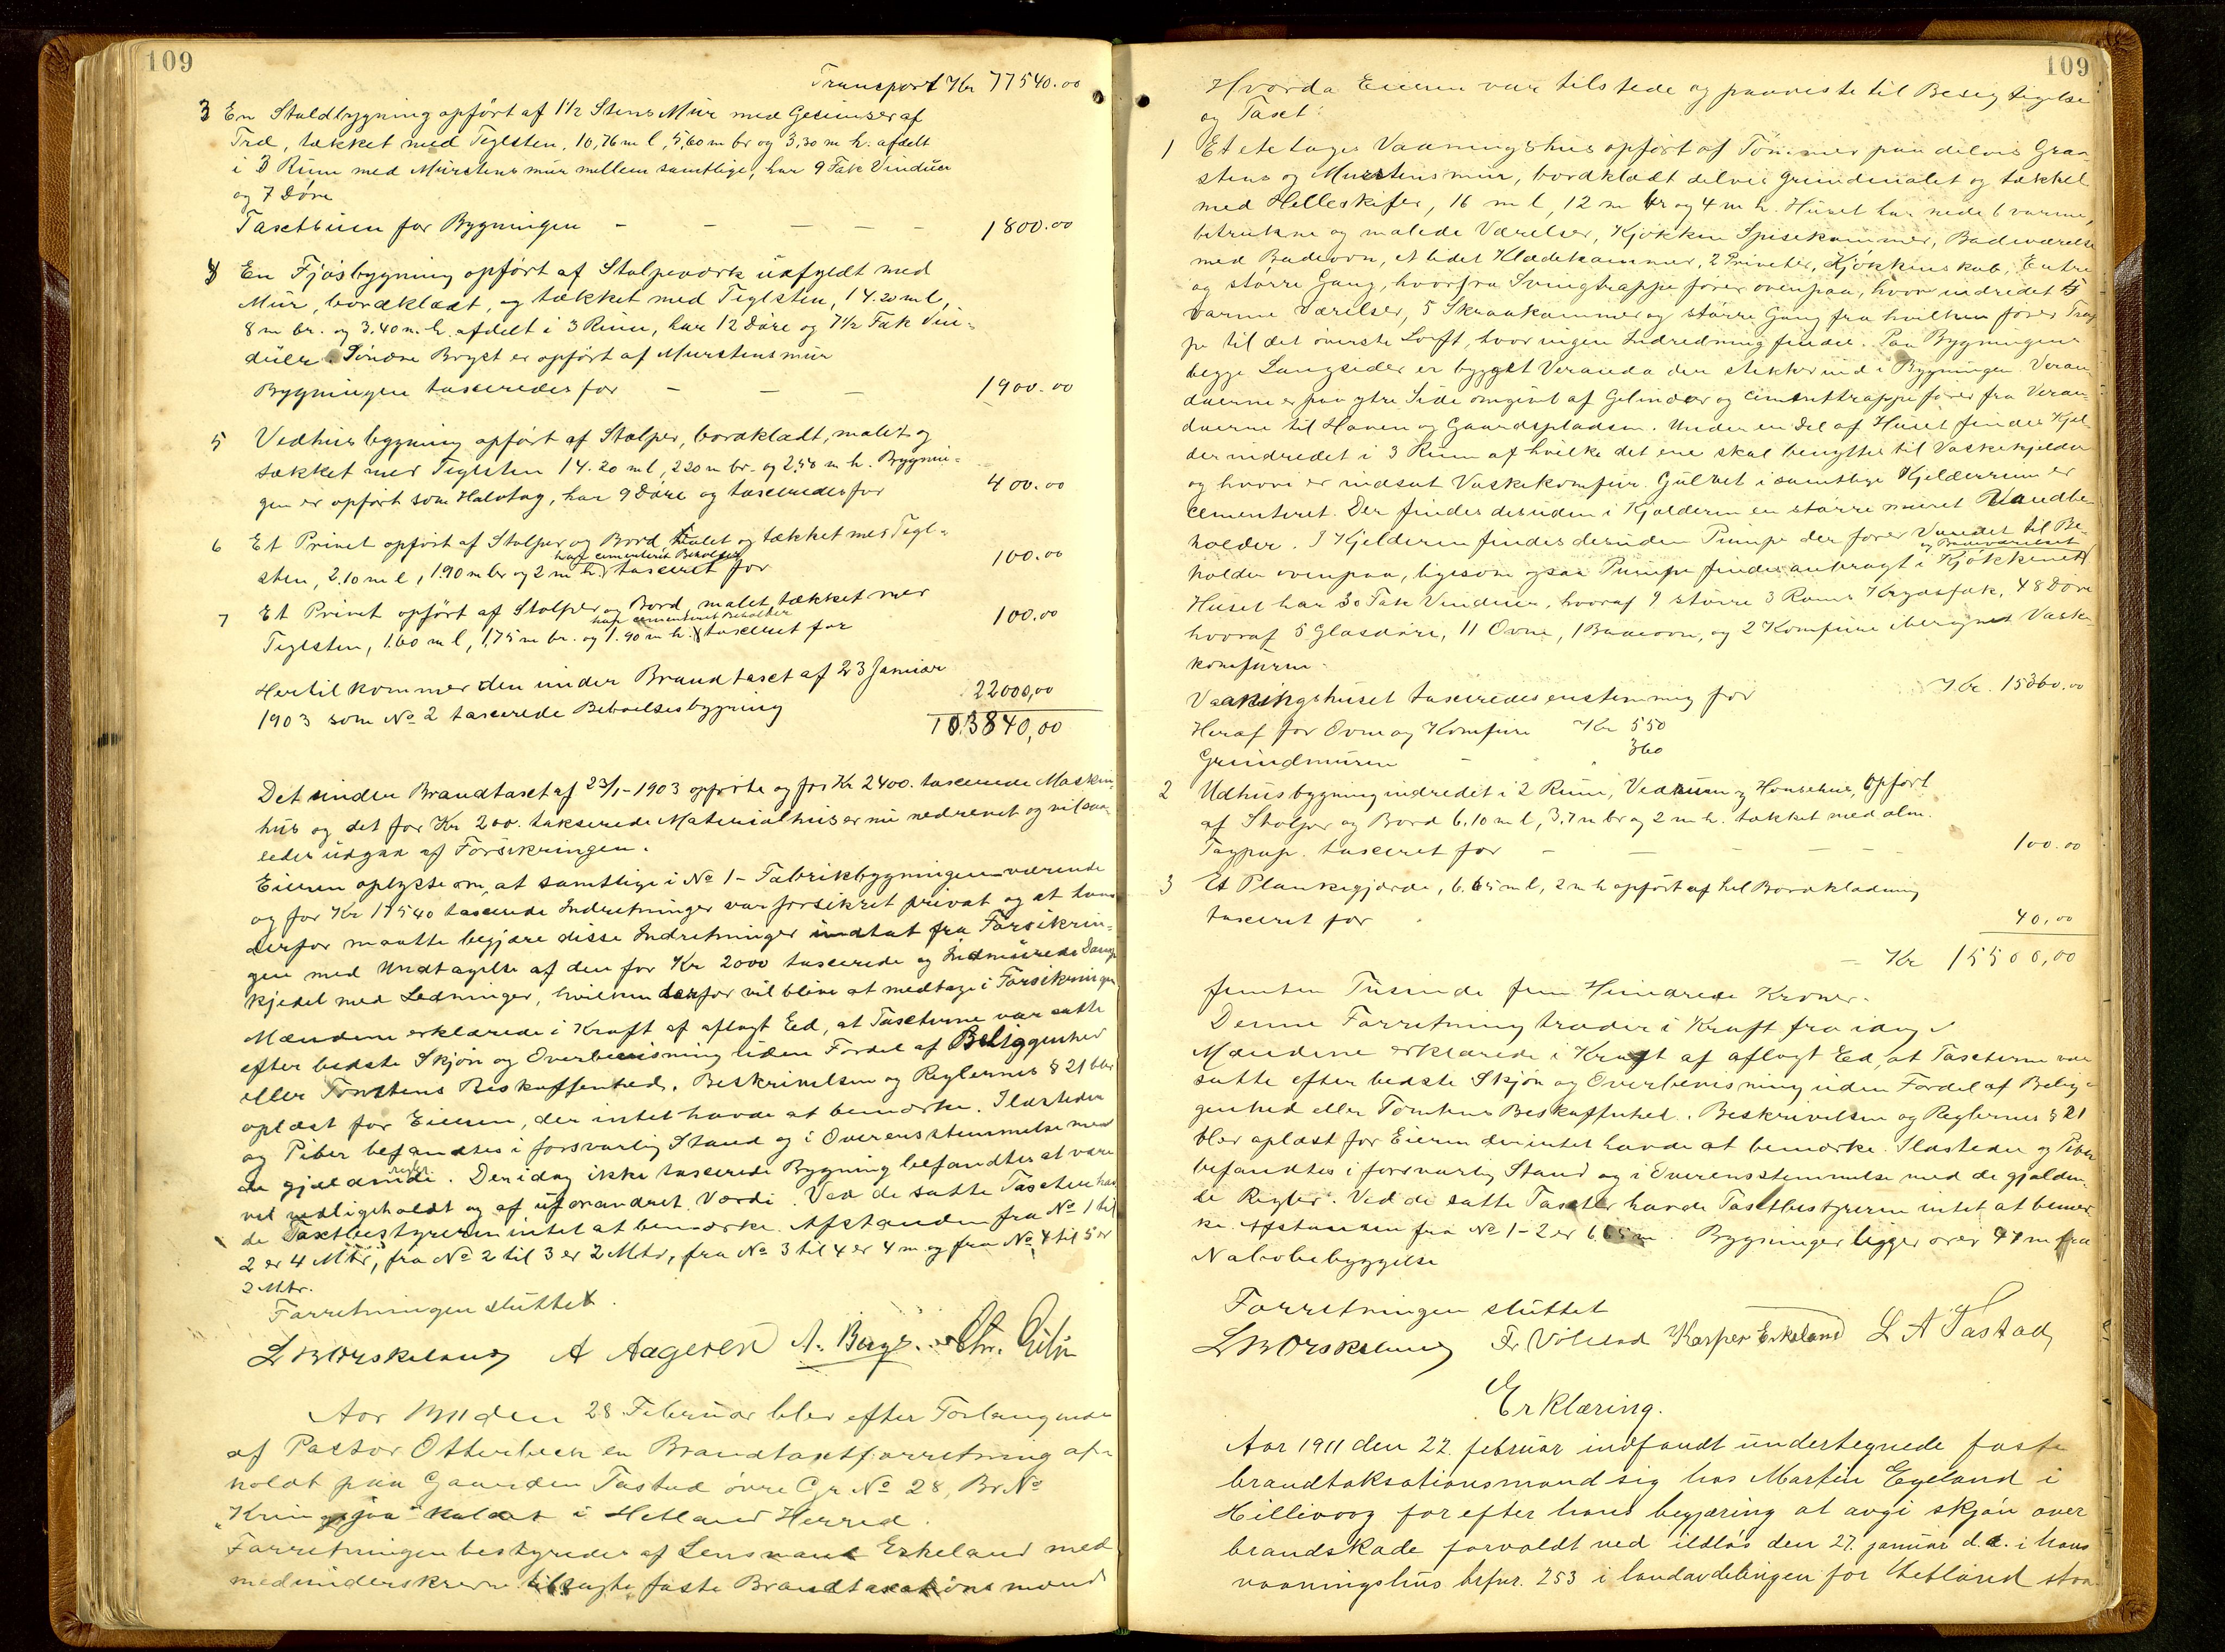 109
Transport Kr 77540.00
3 En Staldbygning opført af 1½ Stens Mur med Gesimser af
Træ, tækket med Teglsten, 10,76 m l, 5,60 m br og 3,30 m h. afdelt
i 3 Rum med Murstens mur mellem samtlige, har 9 Fak Vinduer
og 7 Døre
Taxtsum for Bygningen - - - - - 1800.00
4 En Fjøsbygning opført af Stolpeværk udfyldt med
Mur, bordklædt, og tækket med Teglsten, 14.20 m l,
8 m br. og 3.40 m. h. afdelt i 3 Rum, har 12 Døre og 7½ Fak Vin-
duer. Søndre Bryst er opført af Murstensmur
Bygningen taxeredes for - - - 1900.00
5 Vedhusbygning opført af Stolper, bordklædt, malet og
tækket med Teglsten 14.20 m l, 2.20 m br. og 2,50 m h. Bygnin-
gen er opført som Halvtag, har 9 Døre og taxeredes for 400.00
6 Et Privet opført af Stolper og Bord malet og tækket med Tegl-
sten, 2.10 m l, 1.90 m br og 2 m h. har cementeret Beholder taxeret for 100.00
7 Et Privet opført af Stolper og Bord, malet, tækket med
Teglsten, 1.60 m l, 1,75 m br. og 1.90 m h. har cementeret Beholder taxeret for 100.00
Hertil kommer den under Brandtaxt af 23 Januar
1903 som No 2 taxerede Beboelsesbygning 22000,00
103840,00
Det under Brandtaxt af 23/1-1903 opførte og for Kr 2400. taxerede Maskin-
hus og det for Kr 200. takserede Materialhus er nu nedrevet og vil saa-
ledes udgaa af Forsikringen.
Eieren oplyste om, at samtlige i No 1 - Fabrikbygningen værende
og for Kr 17540 taxerede Indretninger var forsikret privat og at han
derfor maatte begjære disse Indretninger undtat fra Forsikrin-
gen med Undtagelse af den for Kr 2000 taxerede og Indmurede Damp
kjedel med Ledninger, hvilken derfor vil blive at medtage i Forsikringen
Mændene erklærede i Kraft af aflagt Eed, at Taxterne var satte
efter bedste Skjøn og Overbevisning uden Fordel af Beliggenhed
eller Tomtens Beskaffenhed. Beskrivelsen og Reglernes § 21 blev
oplæst for Eieren, der intet havde at bemærke. Ildsteder
og Piber befandtes i forsvarlig Stand og i Overensstemmelse med
de gjældende regler. Den idag ikke taxerede Bygning befandtes at være
vel vedligeholdt og af uforandret Værdi. Ved de satte Taxter har
de Taxtbestyreren intet at bemærke. Afstanden fra No 1 til
2 er 4 Mtr, fra No 2 til 3 er 2 Mtr, fra No 3 til 4 er 4 m og fra No 4 til 5 er
2 Mtr.
Forretningen sluttet.
L B Orskeland A Aageren A. Berge Chr.
Aar 1911 den 28 Februar blev efter Forlangende
af Pastor Otterbech en Brandtaxtforretning af-
holdt paa Gaarden Tastad øvre Gr No 28, Br. No
"Kringsjaa" kaldet i Hetland Herred.
Forretningen bestyredes af Lensmand Eskeland med
medunderskrevne tilsagte faste Brandtaxationsmænd
109
Hvorda Eieren var tilstede og paaviste til Besigtigelse
og Taxt:
1 Et etetages Vaaningshus opført af Tømmer paa delvis Graa-
stens og Murstensmur, bordklædt delvis grundmalet og tækket
med Helleskifer, 16 m l, 12 m br og 4 m h. Huset har nede 6 varme,
betrukne og malede Værelser, Kjøkken Spisekammer, Badeværelse
med Badeovn, et lidet Klædekammer, 2 Priveter, Kjøkkenskab, Entre
og større Gang, hvorfra Svingtrappe fører ovenpaa, hvor indredet 5
varme Værelser, 5 Skraakammer og større Gang fra hvilken fører Trap
pe til det øverste Loft, hvor ingen Indredning findes. Paa Bygningens
begge Langsider er bygget Veranda der stikker ind i Bygningen. Veran-
daerne er paa ytre Side omgivet af Gelinder og Cementtrappe fører fra Veran-
daerne til Haven og Gaardspladsen. Under en Del af Huset findes Kjel-
der indredet i 3 Rum af hvilke det ene skal benyttes til Vaskekjelder
og hvori er indsat Vaskekomfur. Gulvet i samtlige Kjelderrum er
cementeret. Der findes desuden i Kjelderen en større muret Vandbe-
holder. I Kjelderen findes desuden Pumpe der fører Vandet til Be-
holder ovenpaa, ligesom ogsaa Pumpe findes anbragt i Kjøkkenet og Badeværelset
Huset har 30 Fak Vinduer, hvoraf 9 større 3 Rams Krydsfak, 48 Døre
hvoraf 5 Glasdøre, 11 Ovne, 1 Badeovn, og 2 Komfure iberegnet Vaske-
komfuren.
Vaaningshuset taxeredes enstemmig for Kr. 15360.00
Heraf for Ovne og Komfure Kr 550
Grundmuren - " 360
2 Udhusbygning indredet i 2 Rum, Vedrum og Hønsehus, opført
af Stolper og Bord 6.10 m l, 3.7 m br og 2 m h. tækket med alm.
Tagpap. taxeret for - - - - 100.00
3 Et Plankegjærde, 6.65 m l, 2 m h opført af hel Bordklædning
taxeret for 40,00
- Kr 15500,00
femten Tusinde fem Hundrede Kroner.
Denne Forretning træder i Kraft fra idag
Mændene erklærede i Kraft af aflagt Eed, at Taxterne var
satte efter bedste Skjøn og Overbevisning uden Fordel af Belig-
genhed eller Tomtens Beskaffenhed. Beskrivelsen og Reglernes § 21
blev oplæst for Eieren der intet havde at bemærke. Ildsteder og Piber
befandtes i forsvarlig Stand og i Overensstemmelse med de gjælden-
de Regler. Ved de satte Taxter havde Taxtbestyreren intet at bemær-
ke. Afstanden fra No 1-2 er 6.65 m. Bygninger ligger over 97 m fra
Nabobebyggelse
Forretningen sluttet
L B Orskeland Fr Vølstad Kasper Eskeland L A Tastad
Erklæring.
Aar 1911 den 22. februar indfandt undertegnede faste
brandtaksationsmænd sig hos Martin Egeland i
Hillivaag for efter hans begjæring at avgi skjøn over
brandskade forvoldt ved ildløs den 27. januar d.a. i hans
vaaningshus brfnr. 253 i landavdelingen for Hetland staa-